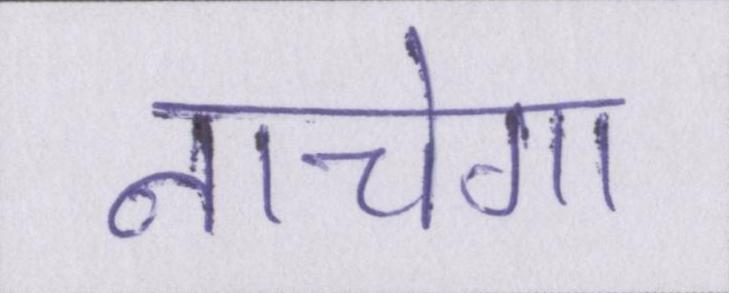 नाचेगा